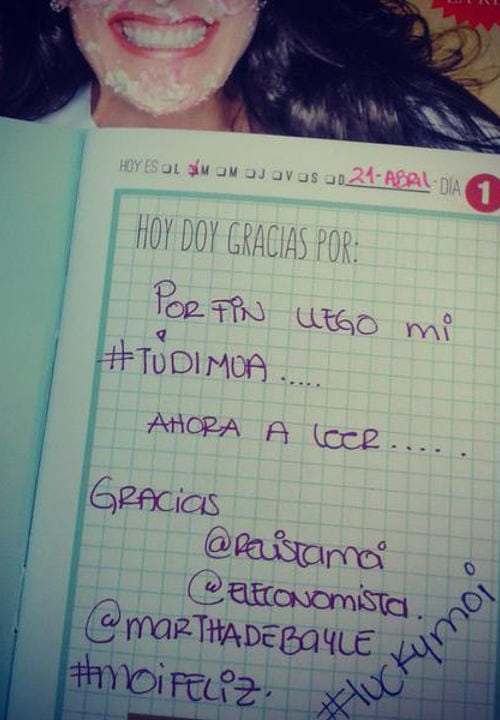 HOY ES L M M J V S D 21-ABRIL DÍA 1
HOY DOY GRACIAS POR:
POR FIN LLEGO mi
#TÚDIMOA.....
AHORA A LEER.....
GRACIAS
@Revistamoi
@eleconomista.
@marTHADEBAYLE
#moiFELIZ.
#luckymoi